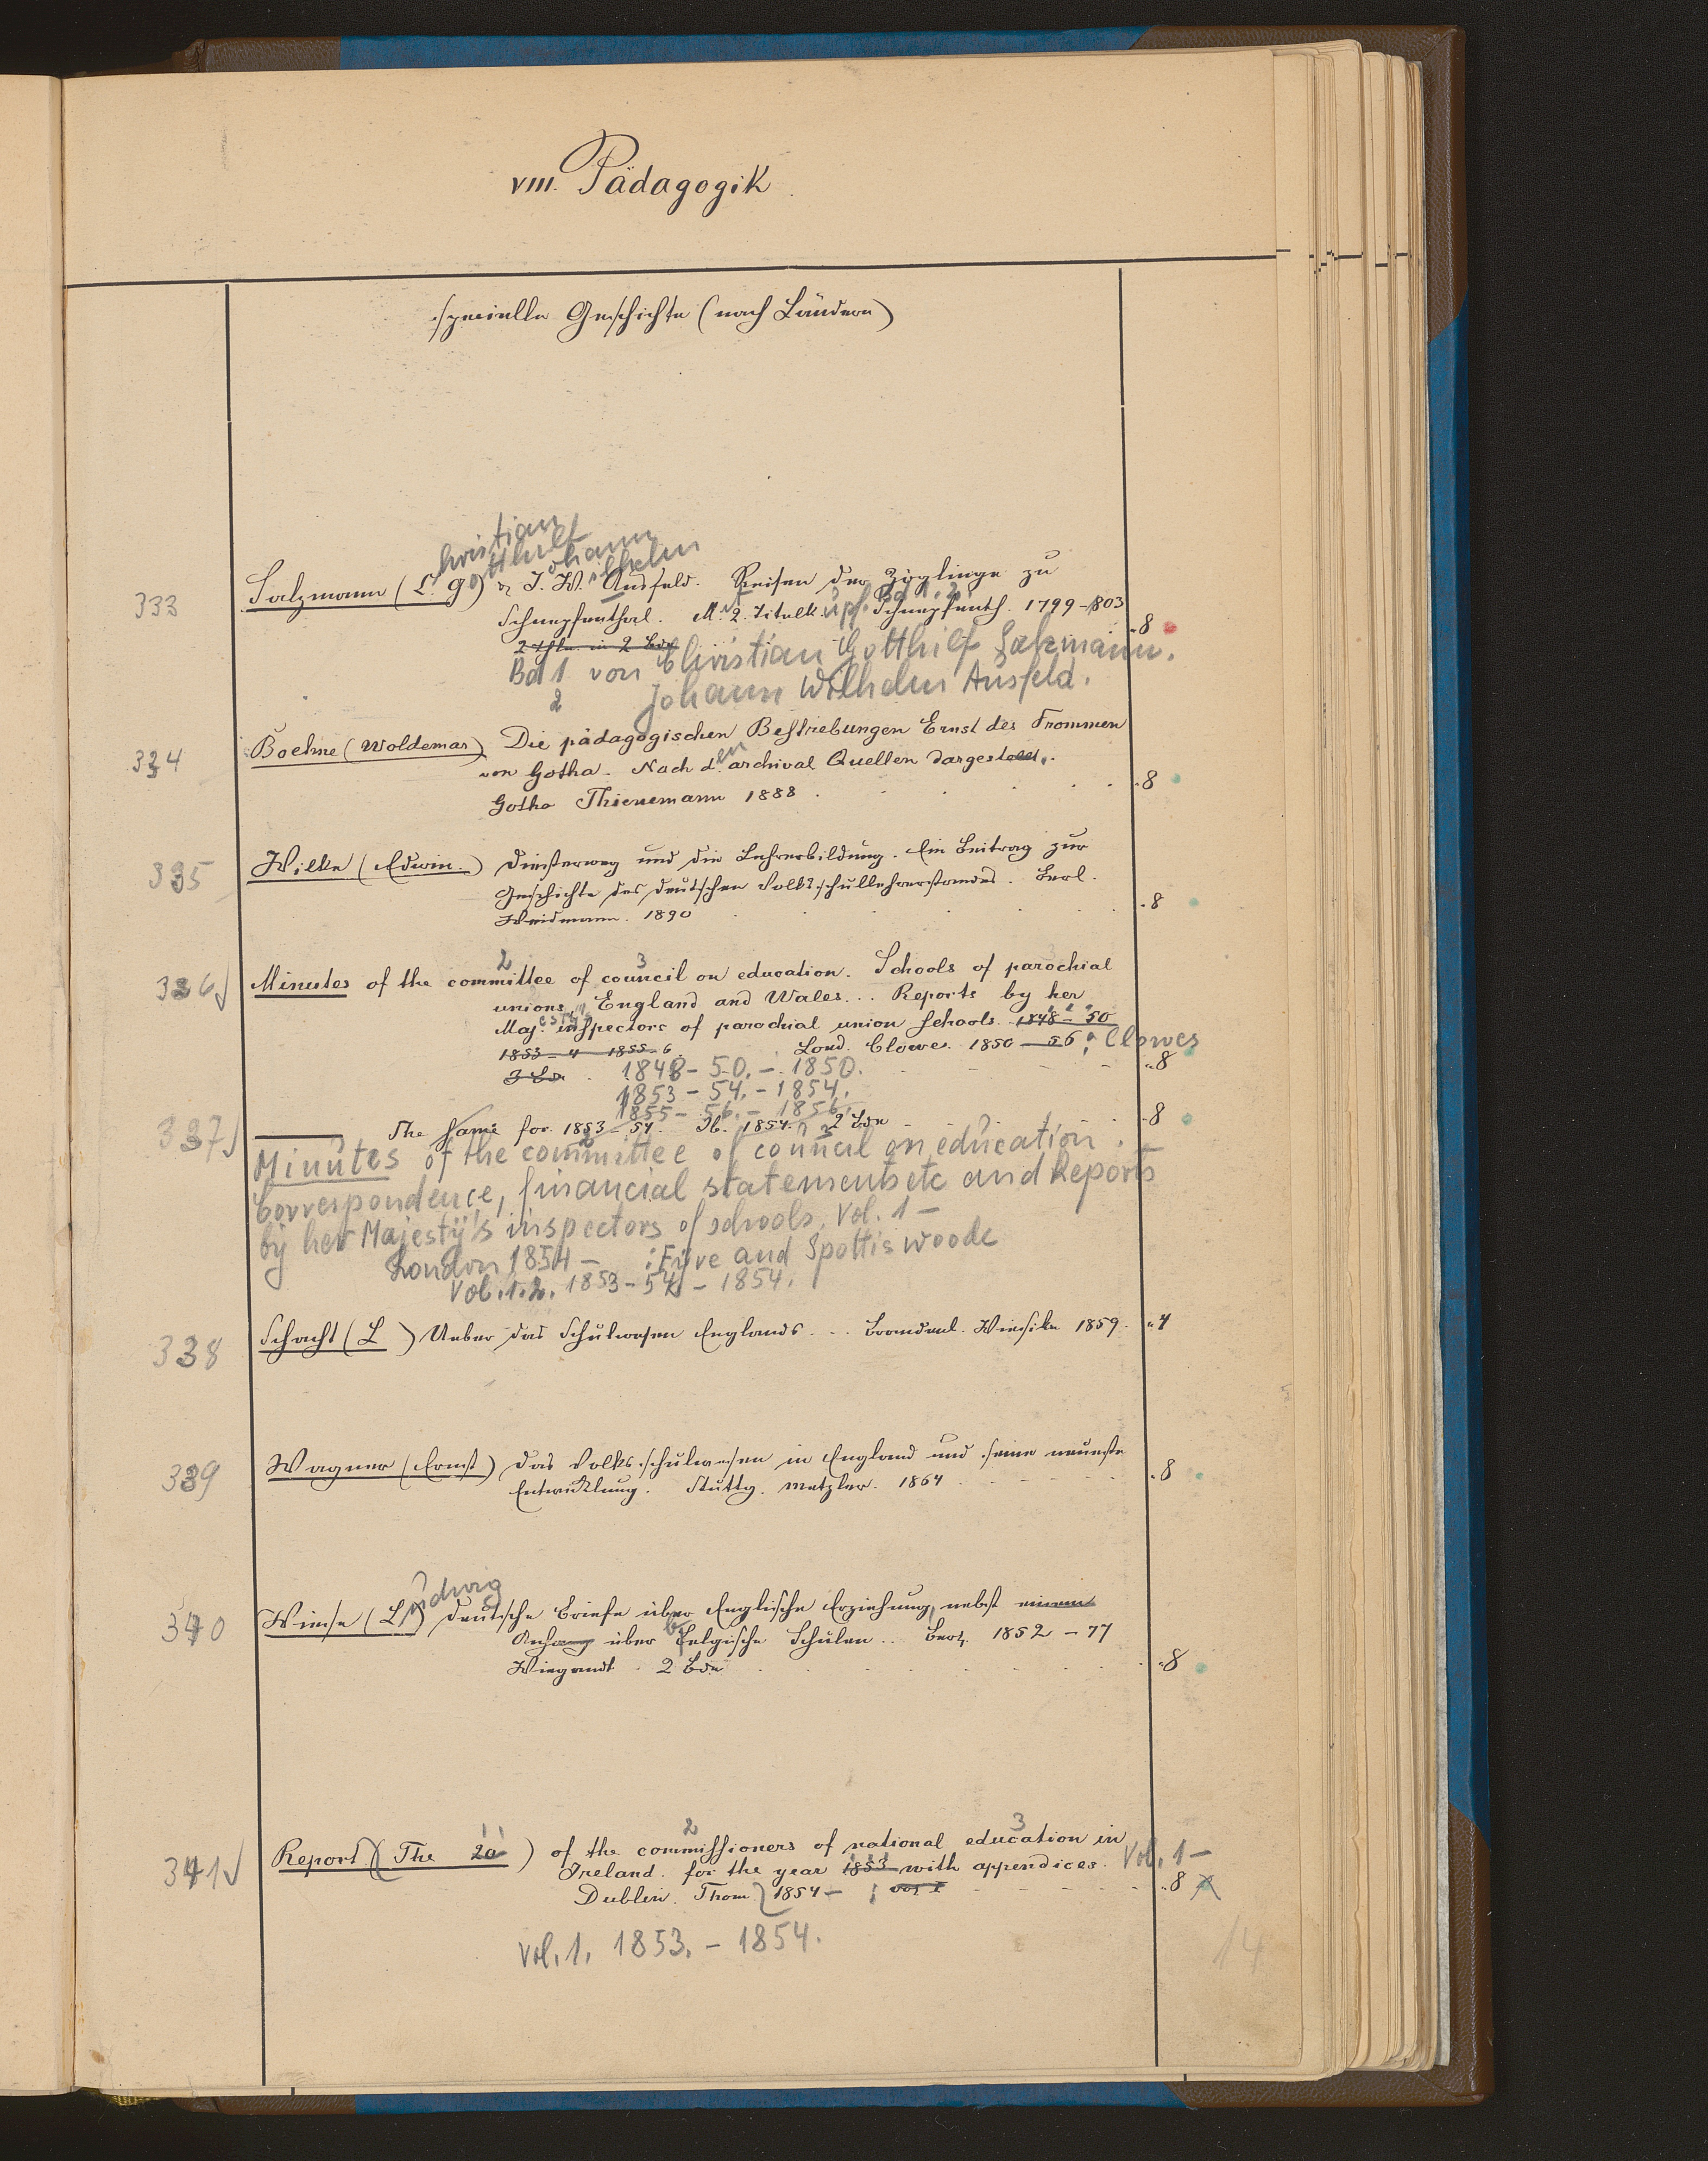 VIII. Pädagogik
specielle Geschichte (nach Ländern)
hristian
otthilf ohann
ilhelm
333 Salzmann (C. G) & J. W. Ausfeld. Reisen der Zöglinge zu
Schnepfenthal. M. 2. Titelkupf. Bd 1. 2. Schnepfenth. 1799-803
2 Thle. in 2 Bdn "8
Bd 1 von Christian Gotthilf Salzmann.
2 Johann Wilhelm Ausfeld.
334 Boehne (Woldemar) Die pädagogischen Bestrebungen Ernst des Frommen
von Gotha. Nach d.en archival Quellen dargestellt.
Gotha Thienemann 1888 "8
335 Wilke (Edwin.) Diesterweg und die Lehrerbildung. Ein Beitrag zur
Geschichte des deutschen Volksschullehrerstandes. Berl.
Weidmann. 1890 "8
2 3
336 Minutes of the committee of council on education. Schools of parochial
unions, England and Wales... Reports by her
Maj.esty's inspectors of parochial union schools. 1848-50
1853-4 1855-6. Lond. Clowes. 1850-56: Clowes
3 Bde 1848-50.-1850. "8
1853-54.-1854.
1855-56.-1856.
337 The same for 1853-54. Ib. 1854. 2 Bde "8
Minutes of the committee of council on education.
Correspondence, financial statements etc and Reports
by her Majesty's inspectors of schools. Vol. 1-
London 1854- : Eyre and Spottis woode
Vol. 1.2. 1853-54-1854.
338 Schacht (L ) Ueber das Schulwesen Englands... Brandenb. Wiesike 1859. "4
339 Wagner (Ernst) Das Volksschulwesen in England und seine neueste
Entwicklung. Stuttg. Metzler. 1864 "8
340 Wiese (Ludwig) Deutsche Briefe über Englische Erziehung, nebst einem
Anhang über belgische Schulen.. Berl. 1852-77
Wiegandt. 2 Bde "8
2 3
341 Report (The 20) of the commissioners of national education in
Ireland. for the year 1853 with appendices. Vol. 1-
Dublin. Thom. 1854- ; vol 1 "8
Vol. 1. 1853.-1854.
14